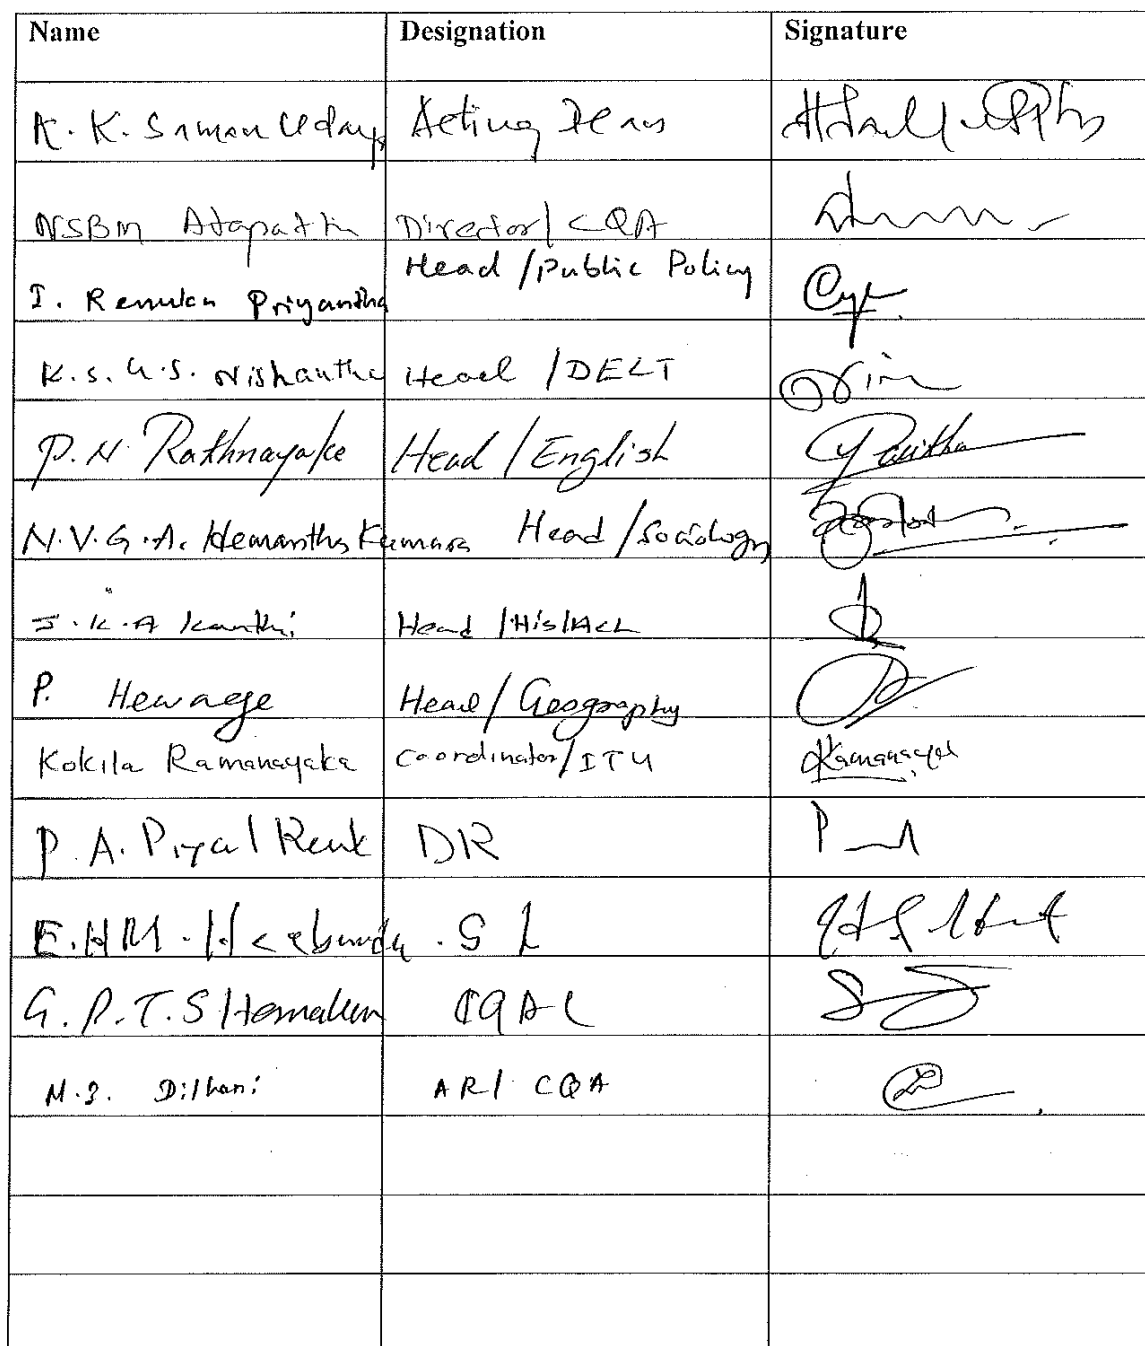 Name Designation Signature
K. K. Saman Udaya Acting Dean
NSBM Atapattu Director/ CQA
I. Renuka Priyantha Head /Public Policy
K.S.G.S. Nishantha Head /DELT
P. N. Rathnayake Head /English
N.V.G.A. Hemantha Kumara Head /Sociology
J.K.A Kanthi Head /His/Ach
P. Hewage Head/ Geography
Kokila Ramanayaka Coordinator/ITU Ramanayaka
P. A. Piyal Renk DR
E.HM. Heebanda . S L
G. P. T. S Hemakum IQAC
M.S. Dilhani AR/ CQA